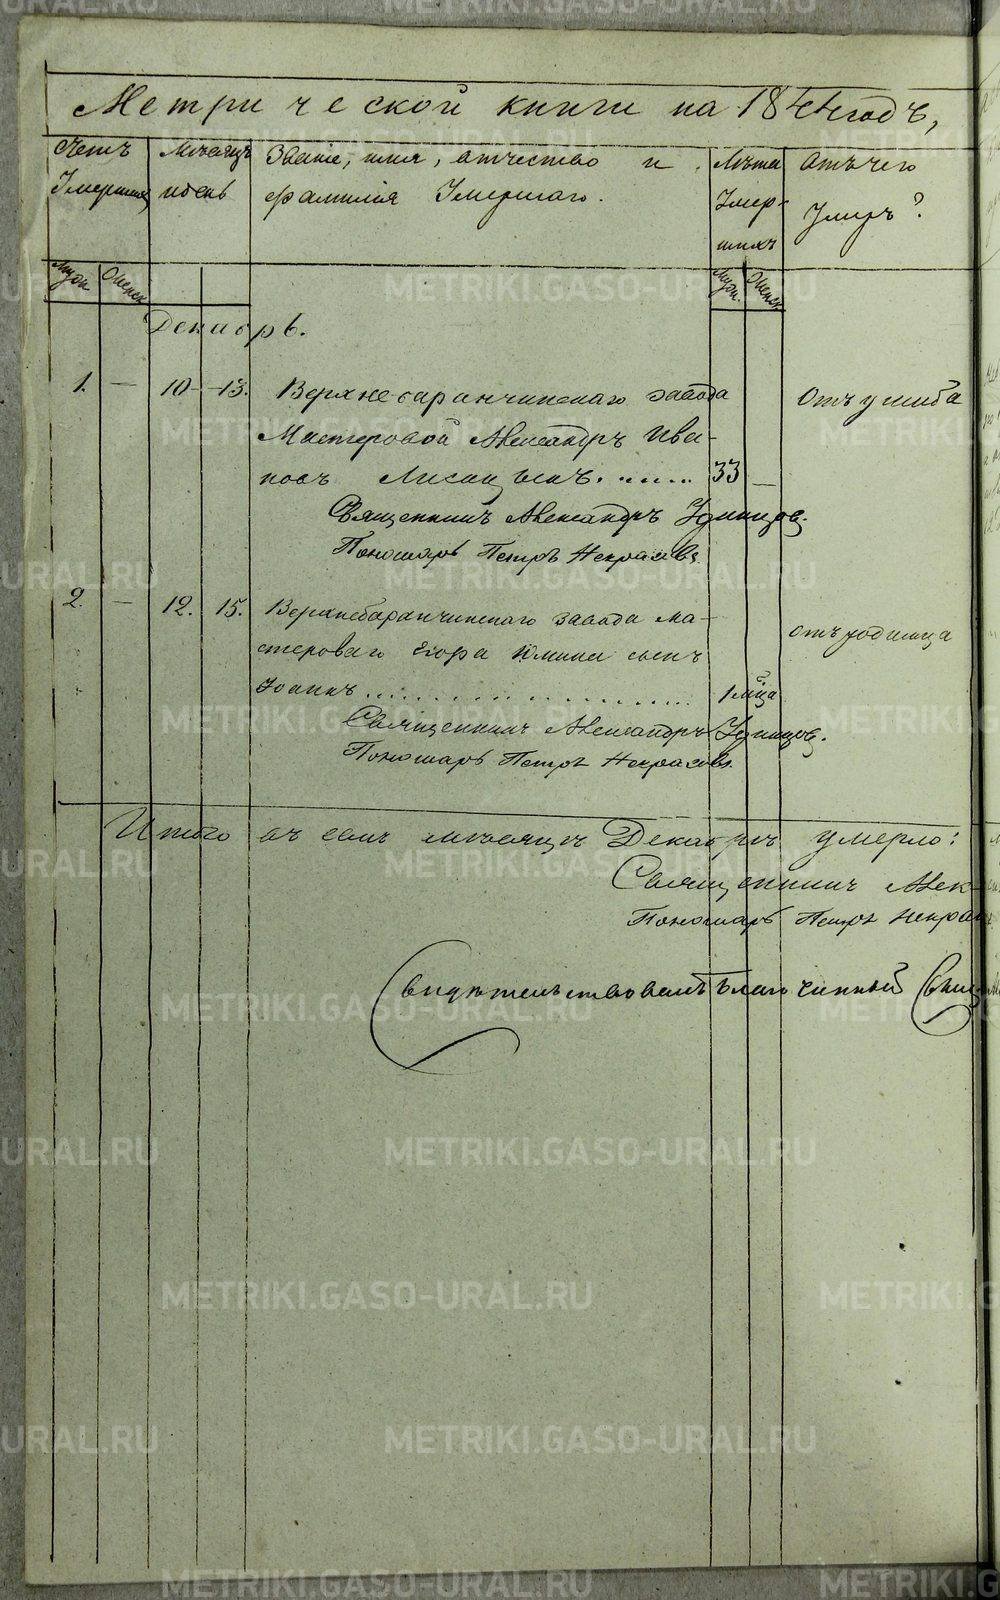 Метрической книги на 1844 годъ,
Счетъ Умершихъ
Мѣсяцъ и день
Званіе, имя, отчество и фамилія Умершаго.
Лѣта Умершихъ
Отъ чего Умеръ?
Муж. Женск.
Муж. Женск.
Декабрь.
1. — 10 — 13. Верхнебаранчинскаго завода Отъ ушиба
Мастеровой Александръ Ива-
новъ Лисицынъ. ...... 33 —
Священникъ Александръ Удинцов.
Пономарь Петръ Некрасовъ.
2. — 12. 15. Верхнебаранчинскаго завода ма- отъ родимца
стероваго Егора сынъ
Іоаннъ .......................... 1 мца
Священникъ Александръ Удинцов.
Пономарь Петръ Некрасовъ.
Итого въ семъ мѣсяцѣ Декабрѣ умерло:
Священникъ Алек
Пономарь Петръ Некрас
Свидѣтельствовалъ Благочинный Свящ
METRIKI.GASO-URAL.RU